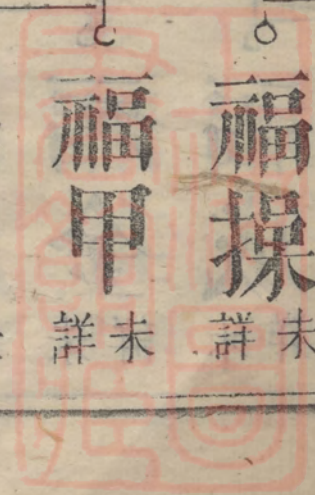 福操未詳
福甲未詳